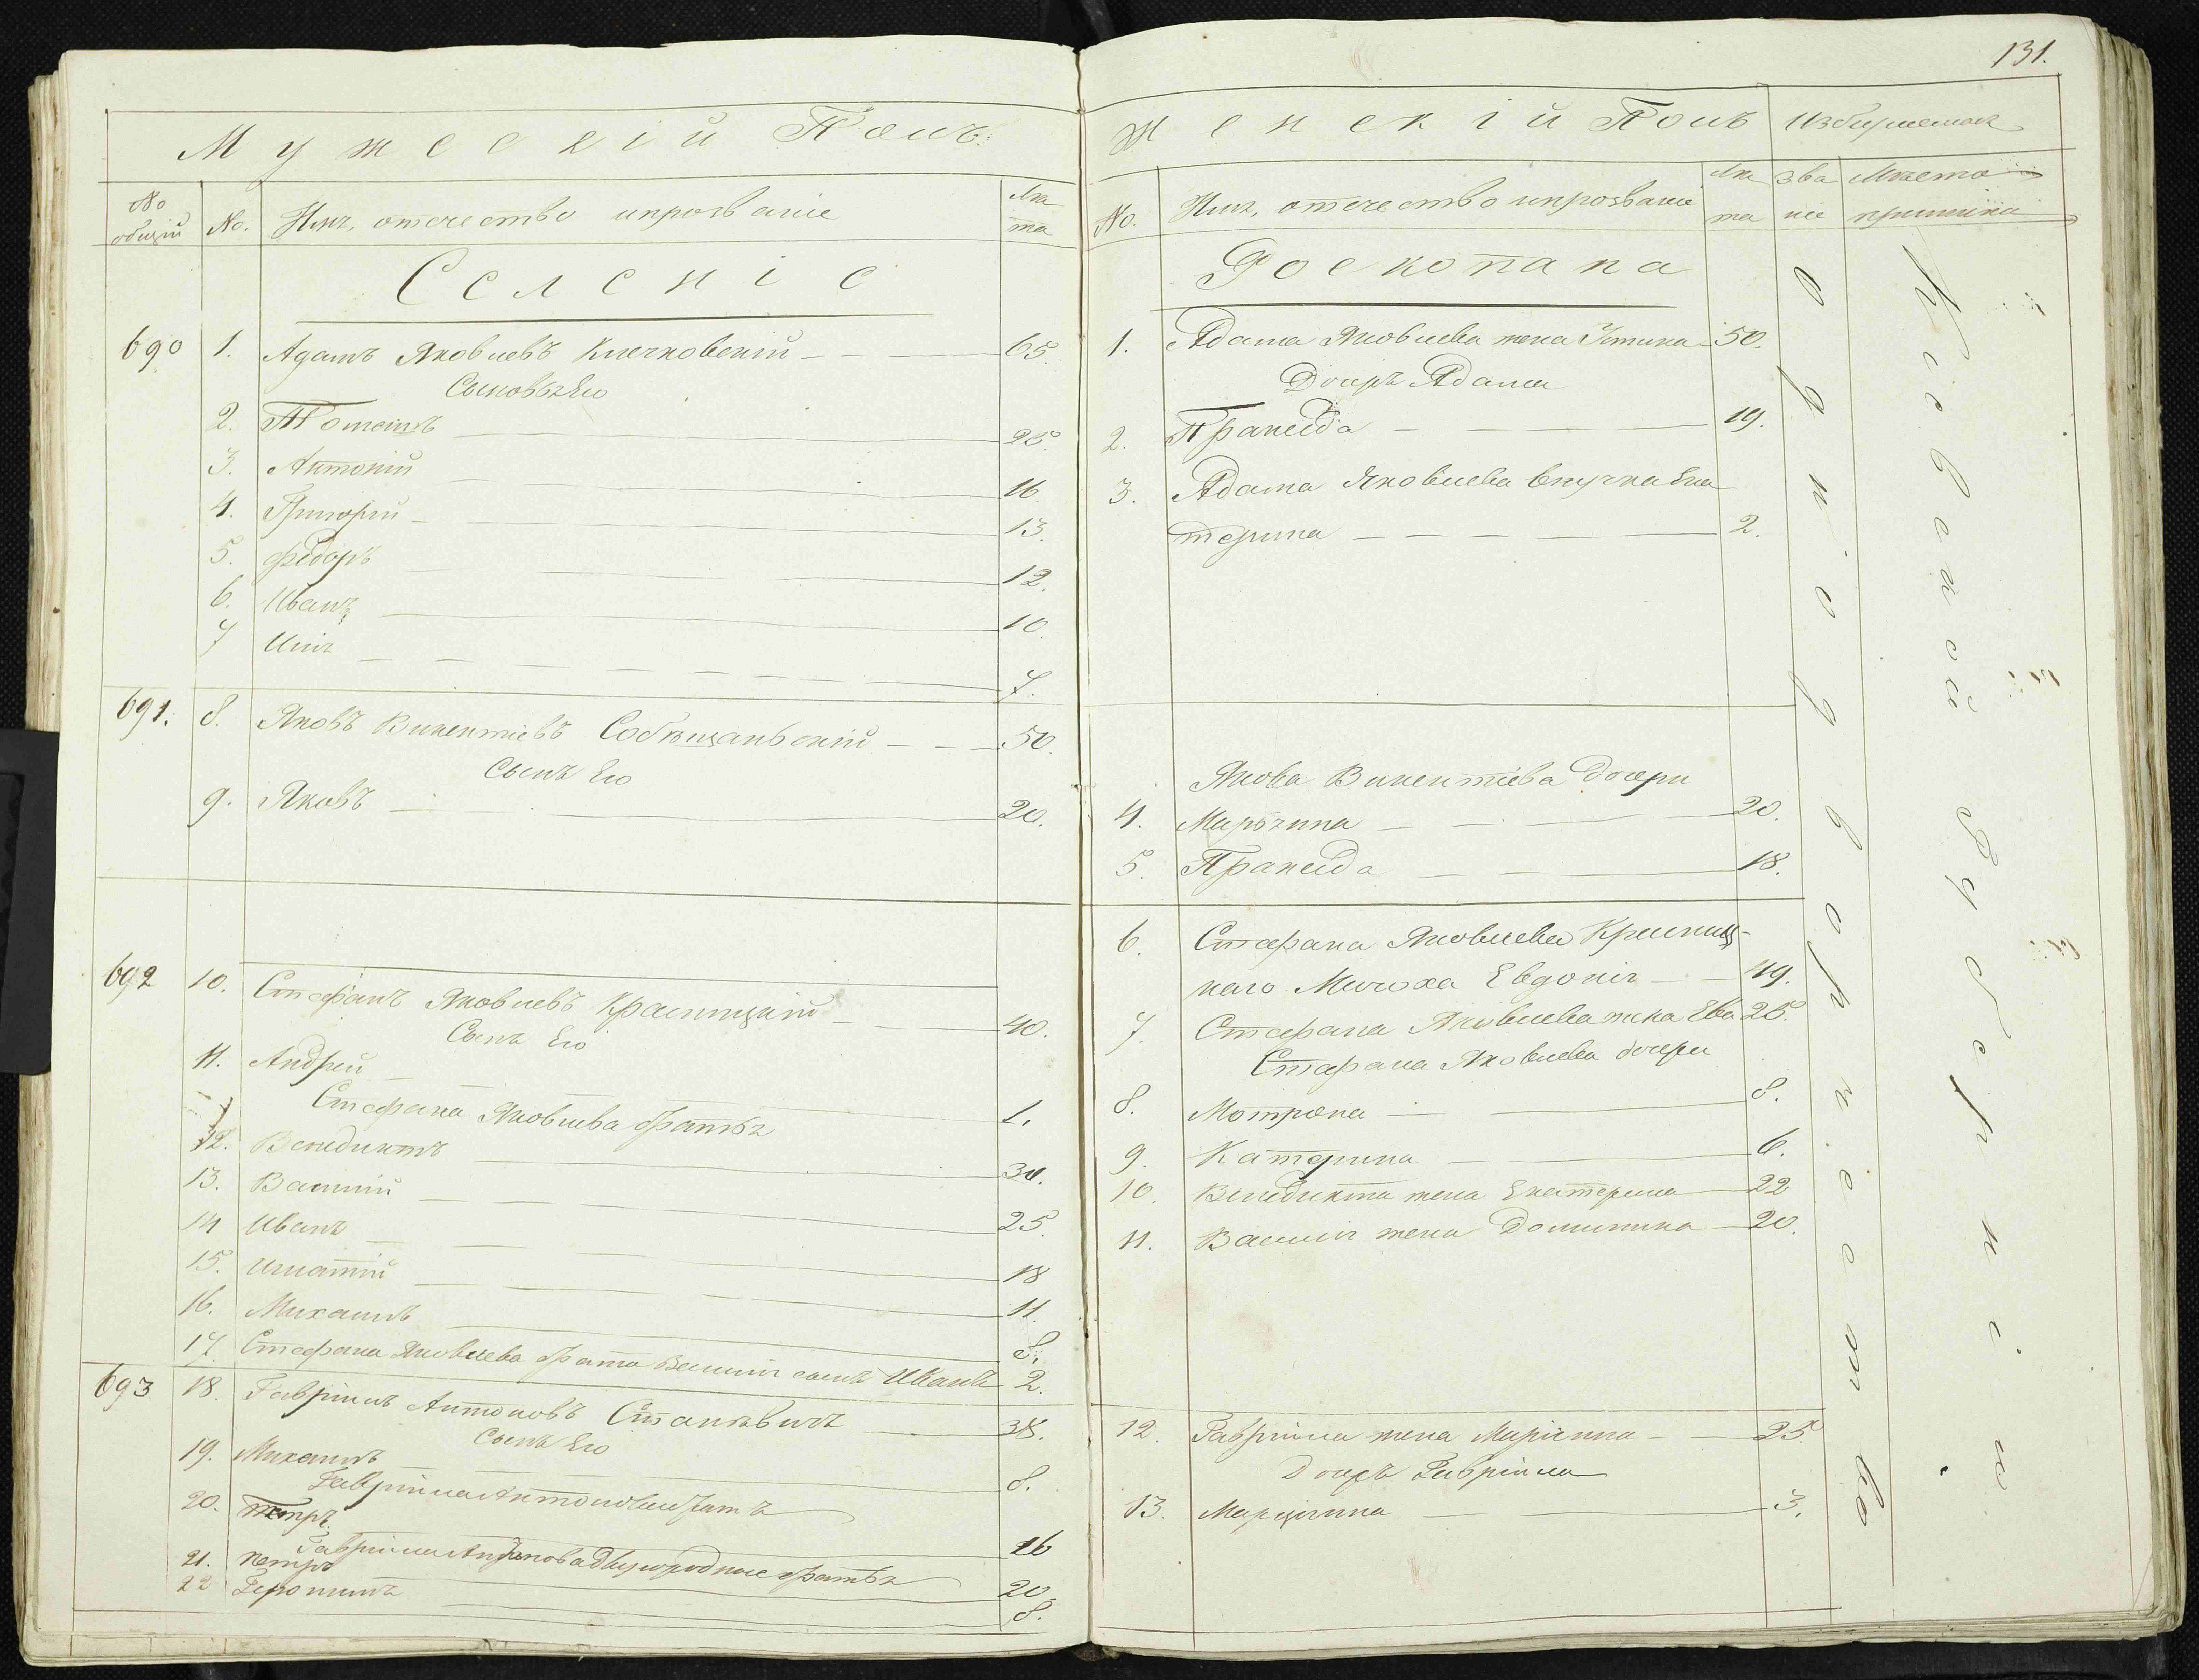 131.
Мужескій Полъ.
№ общій
№.
Имя, отечество и прозваніе
Лѣта
Селеніе
690 1. Адамъ Яковлевъ Клечковскій 65.
Сыновья Его
2. 25.
3. Антоній 16.
4. Григорій 13.
5. Федоръ 12.
6. Иванъ 10.
7 Илія 7.
691. 8. Яковъ Викентіевъ 50.
Сынъ Его
9. Яковъ 20.
692 10. Стефанъ Яковлевъ Красницкій 40.
Сынъ Его
11. Андрей 1.
Стефана Яковлева братья
12. Венедиктъ 30.
13. Василій 25.
14 Иванъ 18
15. Игнатій 11.
16. Михаилъ 8.
17. Стефана Яковлева брата Василія сынъ Иванъ 2.
693 18. Гавріилъ Антоновъ Станкевичъ 38.
Сынъ Его
19. Михаилъ 8.
Гавріила Антонова братъ
20. Петръ 26
Гавріила Антонова двуюродные братья
21. Петръ 20.
22 Геронимъ 8.
Женскій Полъ
№.
Имя, отечество и прозваніе
Лѣта
Званіе
Мѣсто
Роскопана
1. Адама Яковлева жена Устина 50.
Дочерь Адама
2. Праксида 19.
3. Адама Яковлева внучка Ека
терина 2.
Якова Викентіева дочери
4. Марьянна 20.
5. Праксида 18.
6. Стефана Яковлева Красниц-
каго Мачоха Евдокія 49.
7. Стефана Яковлева жена Ева 25.
Стефана Яковлева дочери
8. Мотрона 8.
9. Катерина 6.
10. Венедикта жена Екатерина 22
11. Василія жена Доминика 20.
12. Гавріила жена Маріанна 25.
Дочерь Гавріила
13. Марціанна 3.
однодворчество
Кіевской Губерніи.